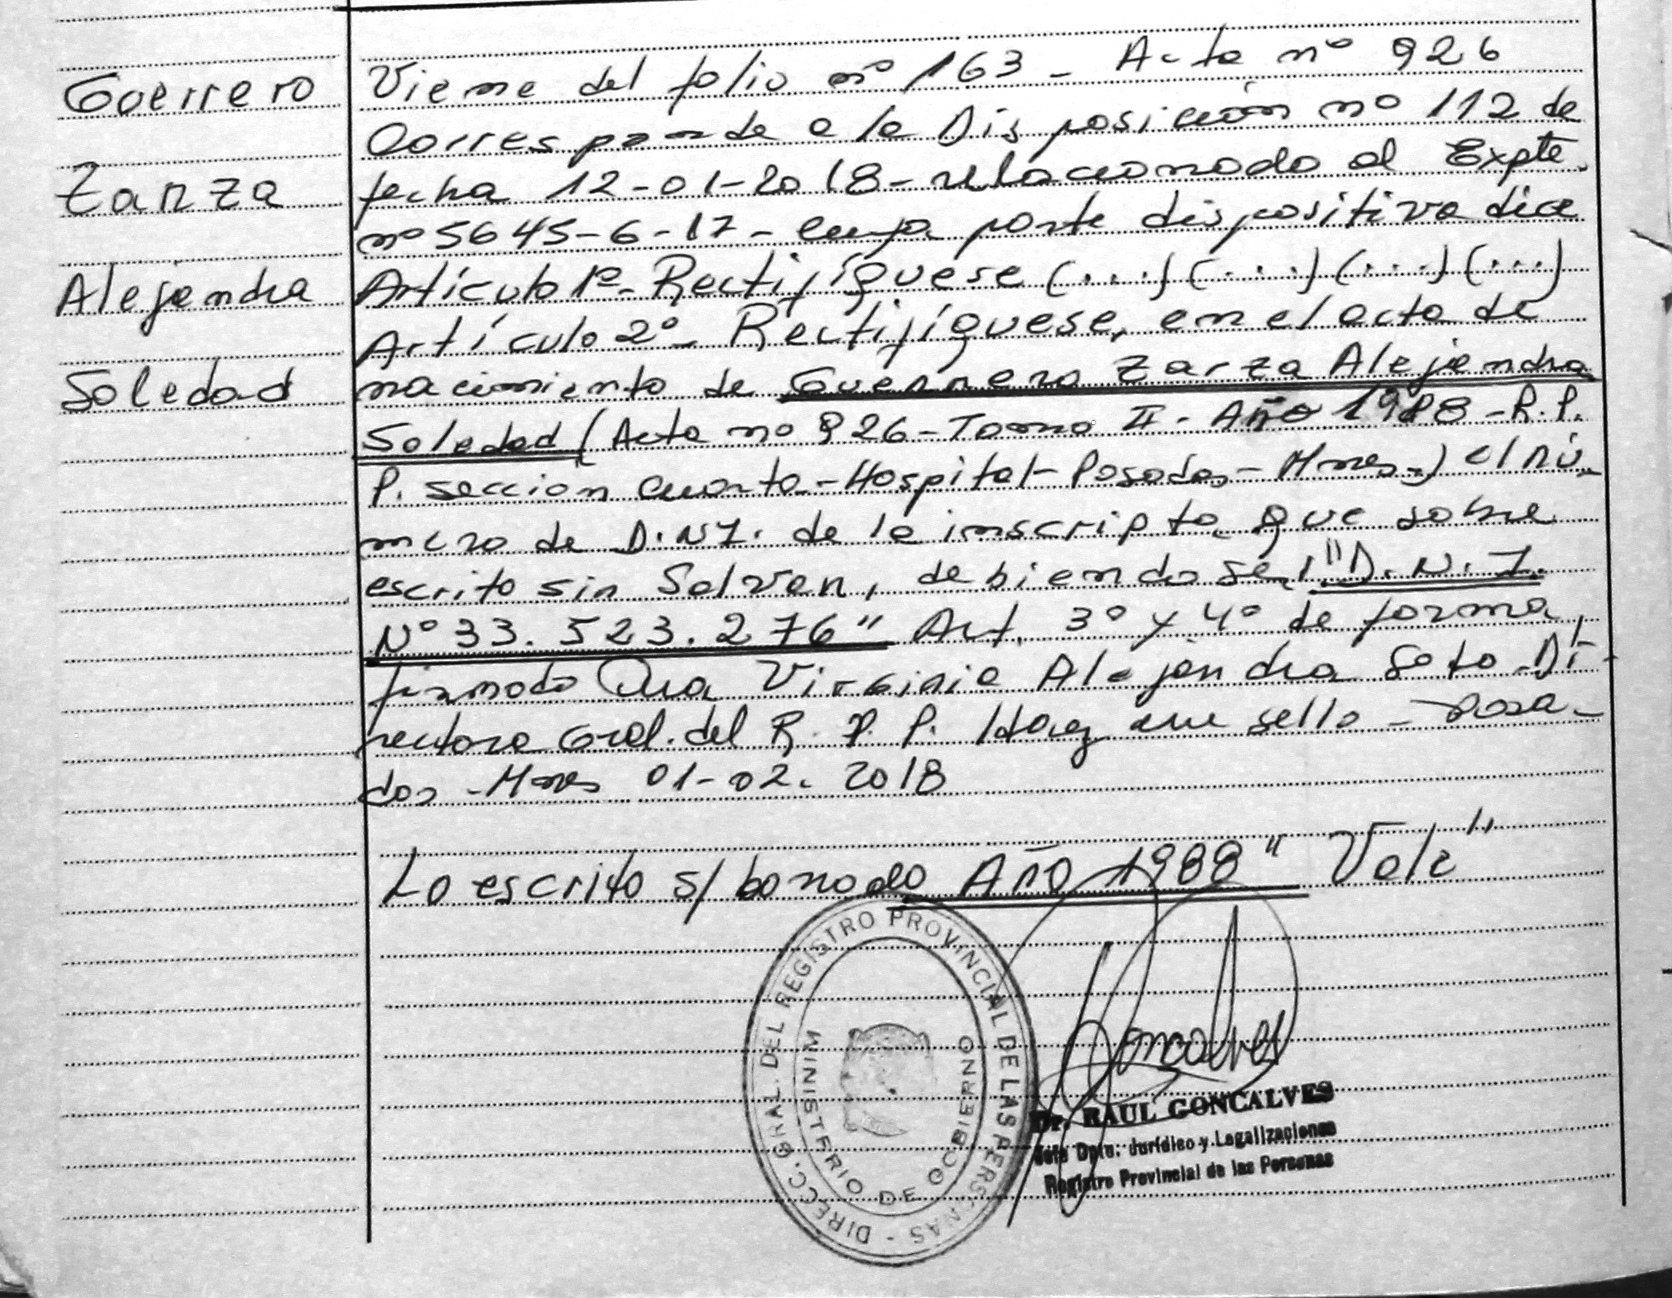 Guerrero
Zarza
Alejandra
Soledad
Viene del folio nº 163 - Acta nº 926
Corresponde a la Disposición nº 112 de
fecha 12-01-2018 - relacionado al Expte.
nº 5645-6-17 - cuya parte dispositiva dice
Artículo 1º- Rectifíquese (...) (...) (...) (...)
Artículo 2º- Rectifíquese, en el acta de
nacimiento de Guerrero Zarza Alejandra
Soledad (Acta nº 926 - Tomo II - Año 1988 - R.P.
P. sección cuarta - Hospital - Posadas - Mnes.) el nú-
mero de D.N.I. de la inscripta que sobre
escrito sin Salvar, debiendo ser "D.N.I.
Nº 33.523.276" Art. 3º y 4º de forma,
firmado Dra Virginia Alejandra Soto - Di-
rectora Gral. del R.P.P. Hay un sello - Posa-
das - Mnes 01-02-2018
Lo escrito s/ borrado Año 1988" Vale"
DIRECC. GRAL. DEL REGISTRO PROVINCIAL DE LAS PERSONAS
MINISTERIO DE GOBIERNO
Goncalves
Dr. RAUL GONCALVES
Jefe Dpto. Jurídico y Legalizaciones
Registro Provincial de las Personas